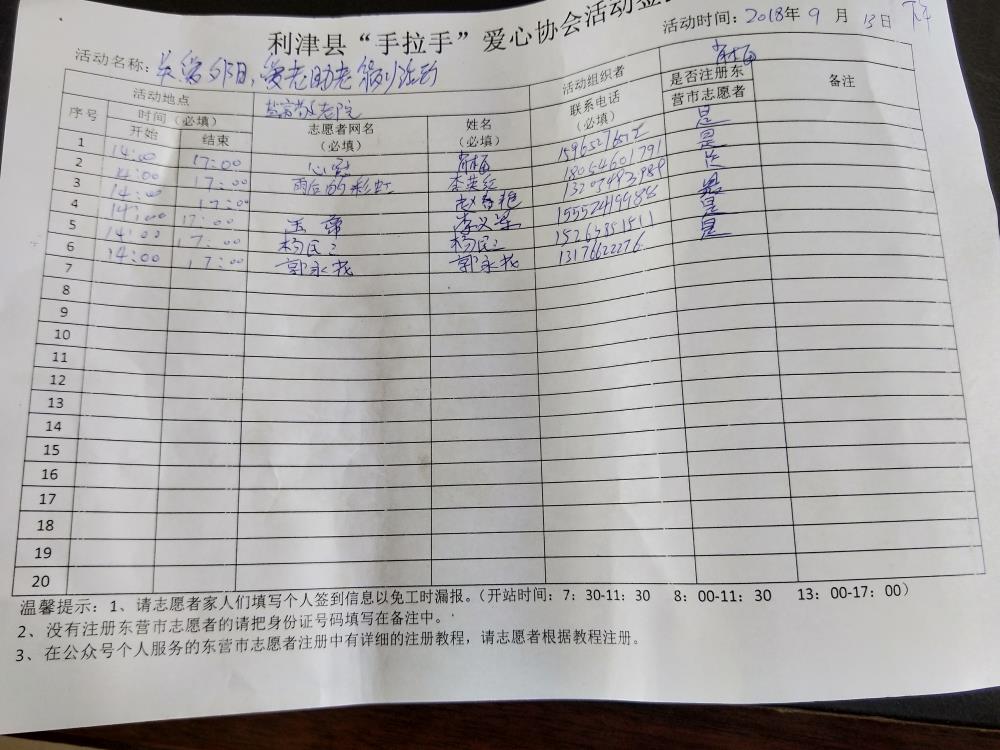 利津县“手拉手”爱心协会活动签
活动时间：2018年 9 月 13日 下午
活动名称：关爱夕阳，爱老助老 系列活动
活动地点 敬老院 活动组织者 肖梅
序号 时间（必填） 志愿者网名（必填） 姓名（必填） 联系电话（必填） 是否注册东营市志愿者 备注
开始 结束
1 14:00 17:00 肖梅 是
2 14:00 17:00 雨后的彩虹 李英红 18054601791 是
3 14:00 17:00 是
4 14:00 17:00 15552419988 是
5 14:00 17:00 杨民 杨民 是
6 14:00 17:00 郭永花 郭永花 13176622276 是
7
8
9
10
11
12
13
14
15
16
17
18
19
20
温馨提示：1、请志愿者家人们填写个人签到信息以免工时漏报。（开站时间：7：30-11：30 8：00-11：30 13：00-17：00）
2、没有注册东营市志愿者的请把身份证号码填写在备注中。
3、在公众号个人服务的东营市志愿者注册中有详细的注册教程，请志愿者根据教程注册。